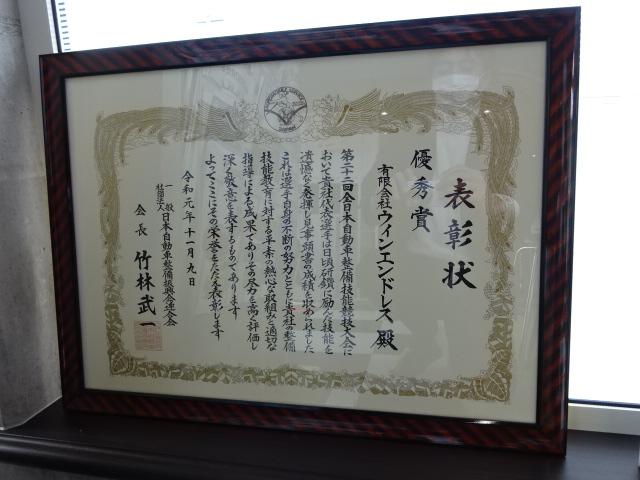 表彰状
優秀賞
有限会社ウィンエンドレス殿
第二十二回全日本自動車整備技能競技大会に
おいて貴社代表選手は日頃研鑽に励んだ技能を
遺憾なく発揮し見事頭書の成績を収められました
これは選手自身の不断の努力とともに貴社の整備
技能教育に対する平素の熱心な取組みと適切な
指導による成果でありその尽力を高く評価し
深く敬意を表するものであります
よってここにその栄誉をたたえ表彰します
令和元年十一月九日
一般社団法人日本自動車整備振興会連合会
会長 竹林武一